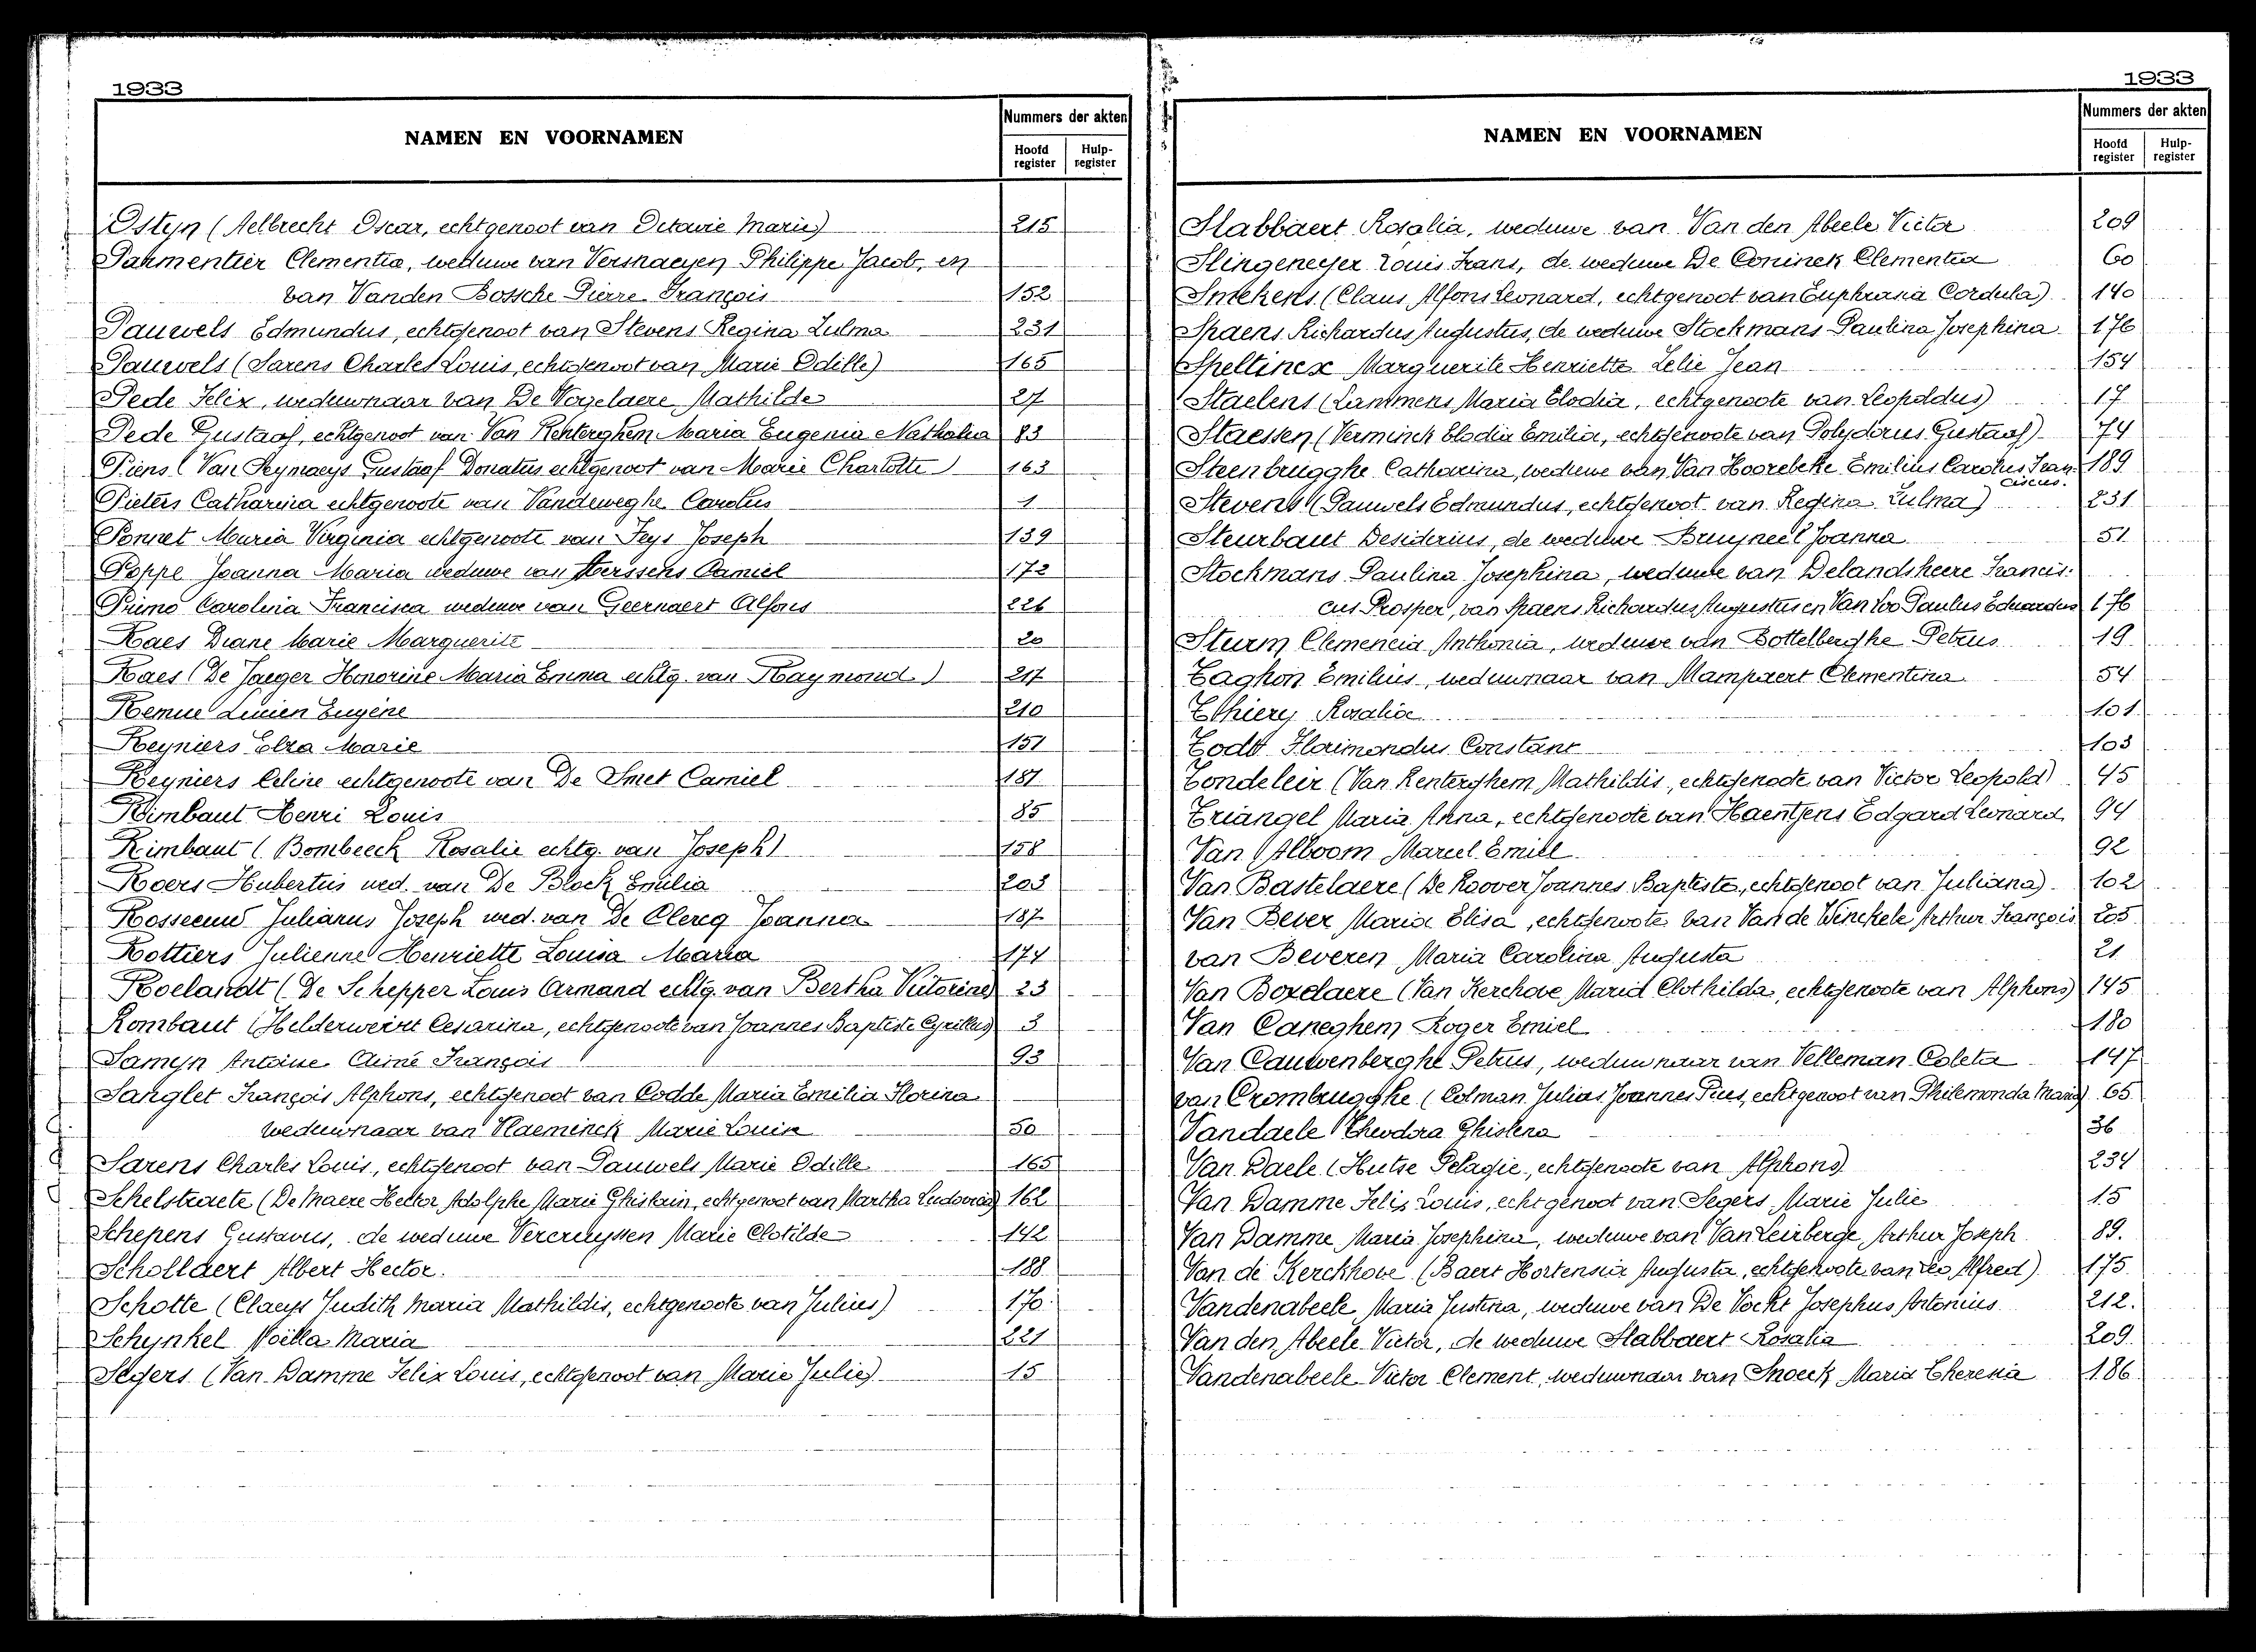 1933
NAMEN EN VOORNAMEN
Nummers der akten
Hoofd register
Hulp-register
Ostyn (Aelbrecht Oscar, echtgenoot van Octavie Marie) 215
Parmentier Clementia, weduwe van Vershaeyen Philippe Jacob, en
van Vanden Bossche Pierre François 152
Pauwels Edmundus, echtgenoot van Stevens Regina Zulma 231
Pauwels (Sarens Charles Louis, echtgenoot van Marie Odille) 165
Pede Felix, weduwnaar van De Vogelaere Mathilde 27
Pede Gustaaf, echtgenoot van Van Renterghem Maria Eugenia Nathalia 83
Piens (Van Seymaeys Gustaaf Donatus echtgenoot van Marie Charlotte) 163
Pieters Catharina echtgenoote van Vandeweghe Carolus 1
Ponnet Maria Virginia echtgenoote van Feys Joseph 139
Poppe Joanna Maria weduwe van Herssens Camiel 172
Primo Carolina Francisca weduwe van Geernaert Alfons 226
Raes Diane Marie Marguerite 20
Raes (De Jaeger Honorine Maria Emma echtg. van Raymond.) 217
Remue Lucien Eugène 210
Reyniers Elza Marie 151
Reyniers Celine echtgenoote van De Smet Camiel 181
Rimbaut Henri Louis 85
Rimbaut (Bombeeck Rosalie echtg. van Joseph) 158
Roers Hubertus wed. van De Block Emilia 203
Rosseeuw Julianus Joseph wed. van De Clercq Joanna 187
Rottiers Julienne Henriette Louisa Maria 174
Roelandt (De Schepper Louis Armand echtg. van Bertha Victorine) 23
Rombaut (Helderweirt Cesarina, echtgenoote van Joannes Baptiste Cyrillus) 3
Samyn Antoine Aimé François 93
Sanglet François Alphons, echtgenoot van Codde Maria Emilia Florina
weduwnaar van Vlaeminck Marie Louise 50
Sarens Charles Louis, echtgenoot van Pauwels Marie Odille 165
Schelstraete (De Maere Hector Adolphe Marie Ghislain, echtgenoot van Martha Ludovica) 162
Schepens Gustavus, de weduwe Vercruyssen Marie Clotilde 142
Schollaert Albert Hector. 188
Schotte (Claeys Judith Maria Mathildis, echtgenoote van Julius) 170
Schynkel Noëlla Maria 221
Segers (Van Damme Felix Louis, echtgenoot van Marie Julie) 15
1933
NAMEN EN VOORNAMEN
Nummers der akten
Hoofd register
Hulp-register
Slabbaert Rosalia, weduwe van Van den Abeele Victor 209
Slingeneyer Louis Frans, de weduwe De Coninck Clementia 60
Smekens (Claus Alfons Leonard, echtgenoot van Euphrasia Cordula) 140
Spaens Richardus Augustus, de weduwe Stockmans Paulina Josephina 176
Speltincx Marguerite Henriette Zelie Jean 154
Staelens (Lammens Maria Elodia, echtgenoote van Leopoldus) 17
Staessen (Verminck Elodia Emilia, echtgenoote van Polydorus Gustaaf) 74
Steenbrugghe Catharina, weduwe van Van Hoorebeke Emilius Carolus Fran- 189
ciscus.
Stevens (Pauwels Edmundus, echtgenoot van Regina Zulma) 231
Steurbaut Desiderius, de weduwe Bruyneel Joanna 51
Stockmans Paulina Josephina, weduwe van Delandsheere Francis-
cus Prosper, van Spaens Richardus Augustus en Van Loo Paulus Eduardus 176
Sturm Clemencia Anthonia, weduwe van Bottelberghe Petrus 19
Taghon Emilius, weduwnaar van Mampaert Clementina 54
Thiery Rosalia 101.
Todt Florimondus Constant 103
Tondeleir (Van Renterghem Mathildis, echtgenoote van Victor Leopold) 45
Triangel Maria Anna, echtgenoote van Haentjens Edgard Leonard 94
Van Alboom Marcel Emill 92
Van Bastelaere (De Roover Joannes Baptiste, echtgenoot van Juliana) 102
Van Bever Maria Elisa, echtgenoote van Van de Winckele Arthur François 205
van Beveren Maria Carolina Augusta 21
Van Boxelaere (Van Kerchove Maria Clothilde, echtgenoote van Alphons) 145
Van Caneghem Roger Emiel 180
Van Cauwenberghe Petrus, weduwnaar van Velleman Coleta 147
van Crombrugghe (Colman Julius Joannes Pius, echtgenoot van Philemonda Maria) 65
Vandaele Theodora Ghislena 36
Van Daele (Hutse Pelagie, echtgenoote van Alphons) 234
Van Damme Felix Louis, echtgenoot van Segers Marie Julie 15
Van Damme Maria Josephina, weduwe van Van Leirberge Arthur Joseph 89.
Van de Kerckhove (Baert Hortensia Augusta, echtgenoote van Leo Alfred) 175
Vandenabeele Maria Justina, weduwe van De Vocht Josephus Antonius 212.
Van den Abeele Victor, de weduwe Slabbaert Rosalia 209
Vandenabeele Victor Clement, weduwnaar van Snoeck Maria Theresia 186